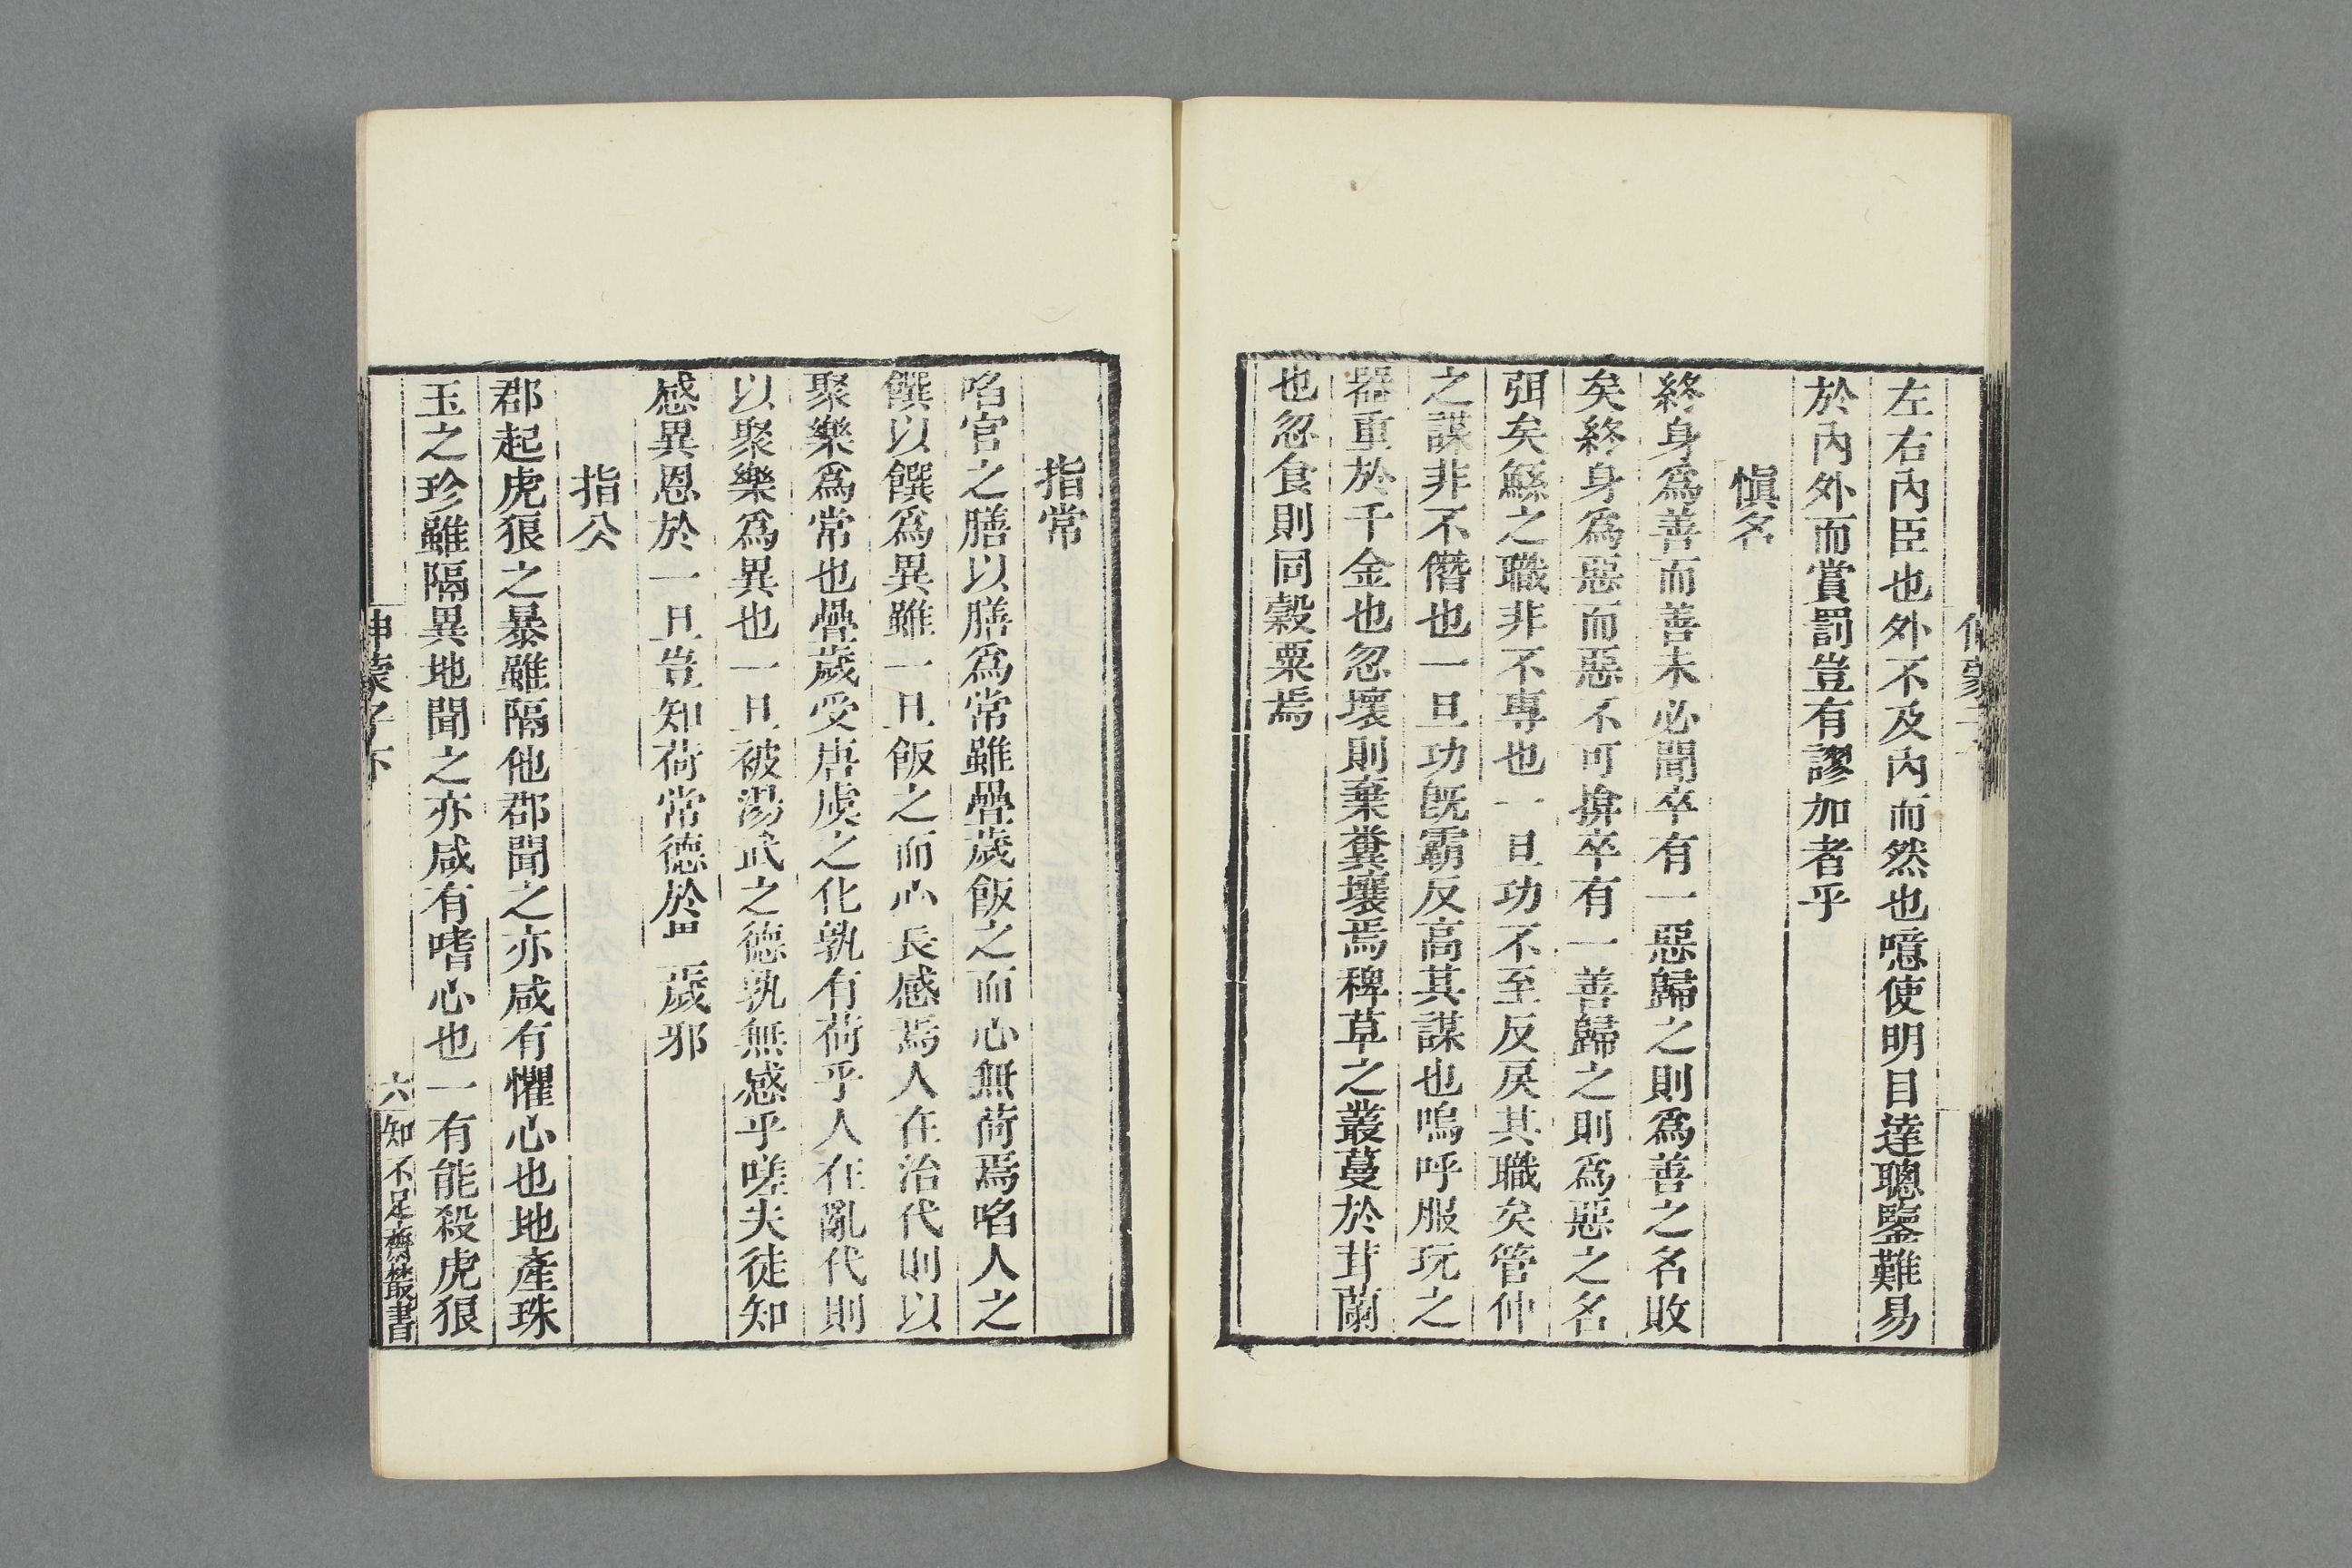 左右內臣也外不及內而然也噫使明目達聰鑒難易
於內外而賞罰豈有謬加者乎
愼名
終身爲善而善未必聞卒有一惡歸之則爲善之名敗
矣終身爲惡而惡不可揜卒有一善歸之則爲惡之名
弭矣鯀之職非不專也一旦功不至反戾其職矣管仲
之謀非不僭也一旦功旣霸反高其謀也嗚呼服玩之
器重於千金也忽壞則棄糞壤焉稗草之叢蔓於茸蘭
也忽食則同穀粟焉
指常
啗官之膳以膳爲常雖疊歲飯之而心無荷焉啗人之
饌以饌爲異雖一旦飯之而心長感焉人在治代則以
聚樂爲常也疊歲受唐虞之化孰有荷乎人在亂代則
以聚樂爲異也一旦被湯武之德孰無感乎嗟夫徒知
感異恩於一旦豈知荷常德於疊歲邪
指公
郡起虎狼之暴雖隔他郡聞之亦咸有懼心也地產珠
玉之珍雖隔異地聞之亦咸有嗜心也一有能殺虎狼
伸蒙子下
六
知不足齋叢書